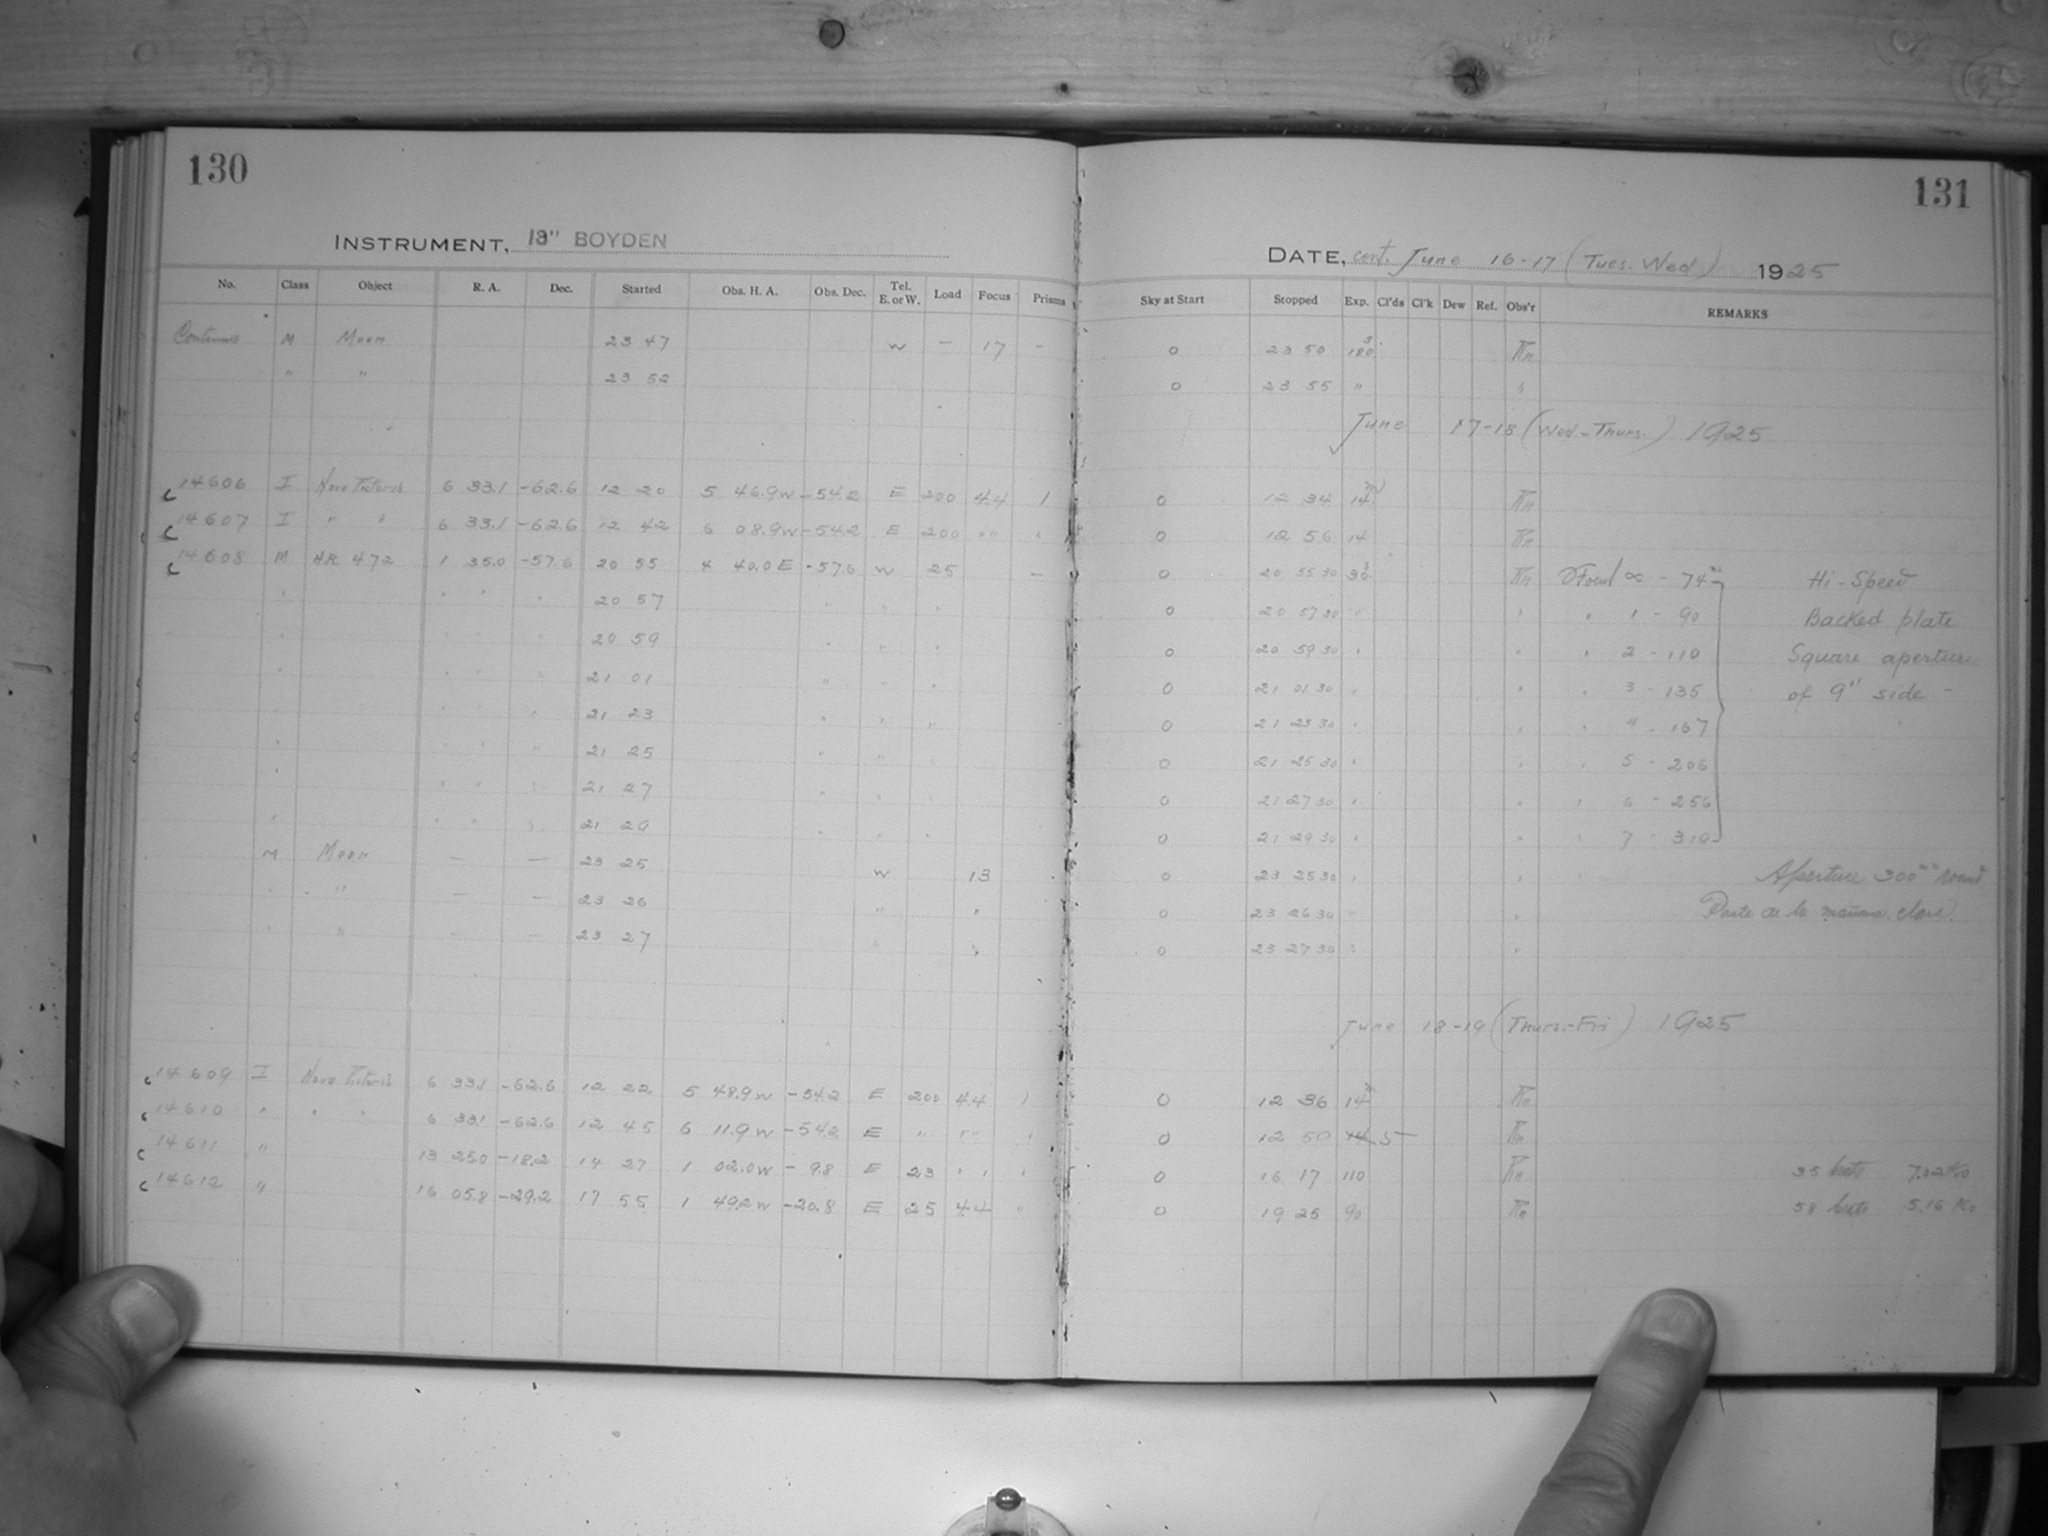 130
131
INSTRUMENT, 13" BOYDEN
DATE, cont. June 16-17 (Tues. Wed) 1925
No. Class Object R. A. Dec. Started Obs. H. A. Obs. Dec. Tel. E. or W. Load Focus Prisms Sky at Start Stopped Exp. Cl'ds Cl'k Dew Ref. Obs'r REMARKS
M Moon 23 47 W - 17 - 0 23 50 180s
" " 23 52 0 23 55 "
June 17-18 (Wed-Thurs.) 1925
c 14606 I Nova Pictoris 6 33.1 -62.6 12 20 5 46.9W -54.2 E 200 44 1 0 12 34 14m
c 14607 I " " 6 33.1 -62.6 12 42 6 08.9W -54.2 E 200 " " 0 12 56 14
c 14608 M HR 472 1 35.0 -57.6 20 55 4 40.0E -57.6 W 25 - 0 20 55 30 30s - 74 Hi-Speed
" " " " 20 57 " " " 0 20 57 30 " " " 1 - 90 Backed plate
" " " " 20 59 " " " 0 20 59 30 " " " 2 - 110 Square aperture
" " " " 21 01 " " " 0 21 01 30 " " " 3 - 135 of 9" side -
" " " " 21 23 " " " 0 21 23 30 " " " 4 - 167
" " " " 21 25 " " " 0 21 25 30 " " " 5 - 206
" " " " 21 27 " " " 0 21 27 30 " " " 6 - 256
" " " " 21 29 " " " 0 21 29 30 " " " 7 - 310
M Moon - - 23 25 W 13 0 23 25 30 " " Aperture 300mm round
" " - - 23 26 " " 0 23 26 30 " " Parte de la mañana
" " - - 23 27 " " 0 23 27 30 " "
June 18-19 (Thurs.-Fri) 1925
c 14609 I Nova Pictoris 6 33.1 -62.6 12 22 5 48.9W -54.2 E 200 44 1 0 12 36 14m
c 14610 " " " 6 33.1 -62.6 12 45 6 11.9W -54.2 E " " " 0 12 50 14 5
c 14611 " 13 25.0 -18.2 14 27 1 02.0W -9.8 E 23 " " 0 16 17 110 35
c 14612 " 16 05.8 -29.2 17 55 1 49.2W -20.8 E 25 44 " 0 19 25 90 58